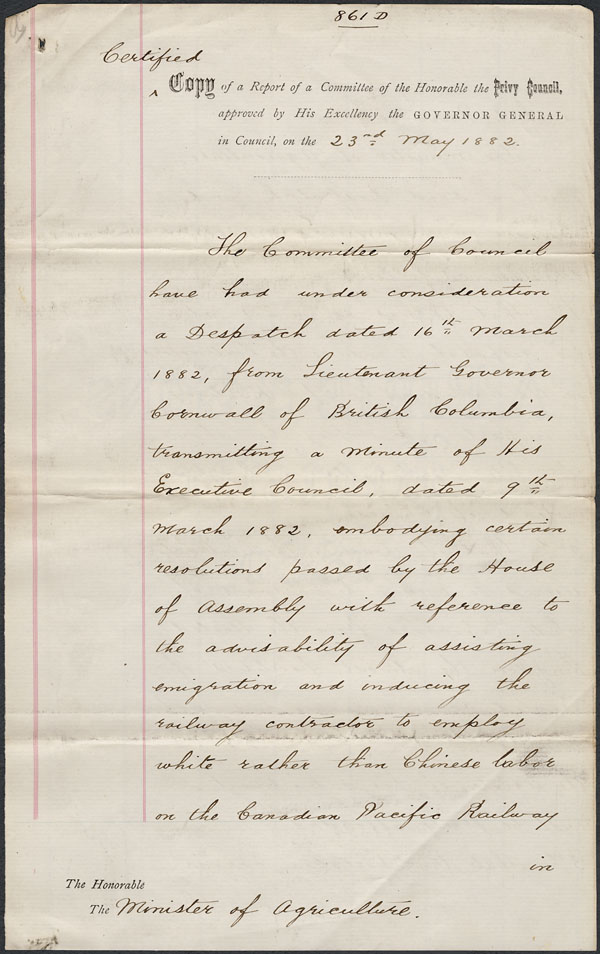 861 D
Certified
^ Copy of a Report of a Committee of the Honorable the Privy Council,
approved by His Excellency the GOVERNOR GENERAL
in Council, on the 23nd May 1882.
The Committee of Council
have had under consideration
a Despatch dated 16th March
1882, from Lieutenant Governor
Cornwall of British Columbia,
transmitting a Minute of His
Executive Council, dated 9th
March 1882, embodying certain
resolutions passed by the House
of Assembly with reference to
the advisability of assisting
emigration and inducing the
railway contractor to employ
white rather than Chinese labor
on the Canadian Pacific Railway
in
The Honorable
The Minister of Agriculture.